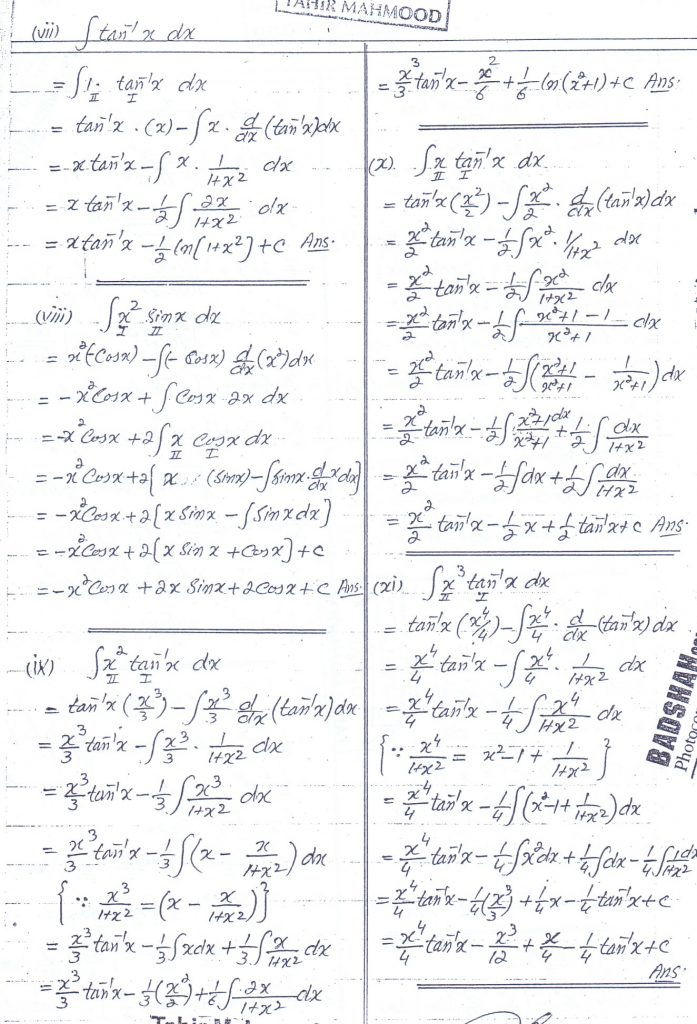 TAHIR MAHMOOD
(vii) ∫ tan⁻¹x dx
= ∫ 1 · tan⁻¹x dx
II I
= tan⁻¹x · (x) − ∫ x · d/dx (tan⁻¹x) dx
= x tan⁻¹x − ∫ x · 1/1+x² dx
= x tan⁻¹x − 1/2 ∫ 2x/1+x² dx
= x tan⁻¹x − 1/2 ln[1+x²] + c Ans.
(viii) ∫ x² Sinx dx
I II
= x²(−Cosx) − ∫(− Cosx) d/dx (x²) dx
= − x²Cosx + ∫ Cosx 2x dx
= −x²Cosx + 2 ∫ x Cosx dx
II I
= −x²Cosx + 2[ x (Sinx) − ∫ Sinx · d/dx x dx]
= − x²Cosx + 2[x Sinx − ∫ Sinx dx]
= −x²Cosx + 2[x Sinx + Cosx] + c
= −x²Cosx + 2x Sinx + 2Cosx + c Ans.
(ix) ∫ x² tan⁻¹x dx
II I
= tan⁻¹x (x³/3) − ∫ x³/3 d/dx (tan⁻¹x) dx
= x³/3 tan⁻¹x − ∫ x³/3 · 1/1+x² dx
= x³/3 tan⁻¹x − 1/3 ∫ x³/1+x² dx
= x³/3 tan⁻¹x − 1/3 ∫ (x − x/1+x²) dx
{ ∵ x³/1+x² = (x − x/1+x²) }
= x³/3 tan⁻¹x − 1/3 ∫ xdx + 1/3 ∫ x/1+x² dx
= x³/3 tan⁻¹x − 1/3 (x²/2) + 1/6 ∫ 2x/1+x² dx
= x³/3 tan⁻¹x − x²/6 + 1/6 ln(x²+1) + c Ans.
(x) ∫ x tan⁻¹x dx
II I
= tan⁻¹x (x²/2) − ∫ x²/2 · d/dx (tan⁻¹x) dx
= x²/2 tan⁻¹x − 1/2 ∫ x² · 1/1+x² dx
= x²/2 tan⁻¹x − 1/2 ∫ x²/1+x² dx
= x²/2 tan⁻¹x − 1/2 ∫ x²+1−1/x²+1 dx
= x²/2 tan⁻¹x − 1/2 ∫ (x²+1/x²+1 − 1/x²+1) dx
= x²/2 tan⁻¹x − 1/2 ∫ x²+1/x²+1 dx + 1/2 ∫ dx/1+x²
= x²/2 tan⁻¹x − 1/2 ∫ dx + 1/2 ∫ dx/1+x²
= x²/2 tan⁻¹x − 1/2 x + 1/2 tan⁻¹x + c Ans.
(xi) ∫ x³ tan⁻¹x dx
II I
= tan⁻¹x (x⁴/4) − ∫ x⁴/4 · d/dx (tan⁻¹x) dx
= x⁴/4 tan⁻¹x − ∫ x⁴/4 · 1/1+x² dx
= x⁴/4 tan⁻¹x − 1/4 ∫ x⁴/1+x² dx
{ ∵ x⁴/1+x² = x²−1 + 1/1+x² }
= x⁴/4 tan⁻¹x − 1/4 ∫ (x²−1 + 1/1+x²) dx
= x⁴/4 tan⁻¹x − 1/4 ∫ x²dx + 1/4 ∫ dx − 1/4 ∫ 1dx/1+x²
= x⁴/4 tan⁻¹x − 1/4 (x³/3) + 1/4 x − 1/4 tan⁻¹x + c
= x⁴/4 tan⁻¹x − x³/12 + x/4 − 1/4 tan⁻¹x + c
Ans.
BADSHAH